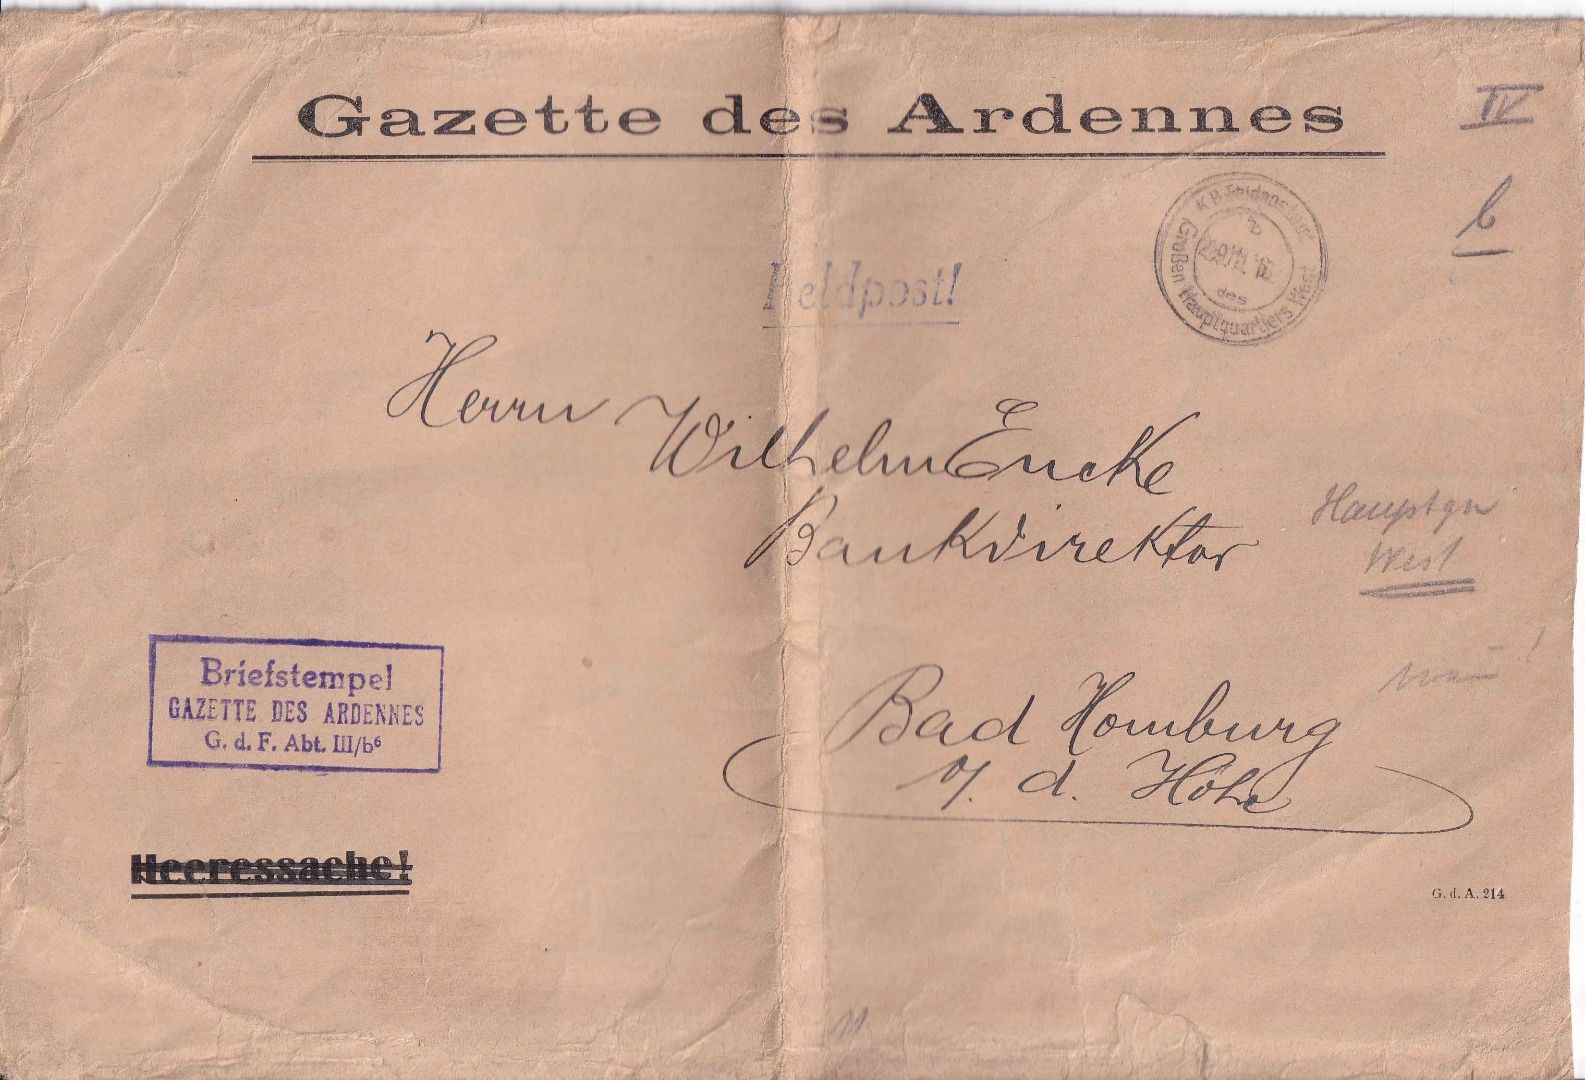 Gazette des Ardennes
IV
b
Feldpost!
K.B. Feldpostamt
b
des
Großen Hauptquartiers West
Herrn Wilhelm Encke
Bankdirektor
Hauptqu
West
Bad Homburg
v. d. Höhe
Briefstempel
GAZETTE DES ARDENNES
G. d. F. Abt. III/b⁶
Heeressache!
G. d. A. 214